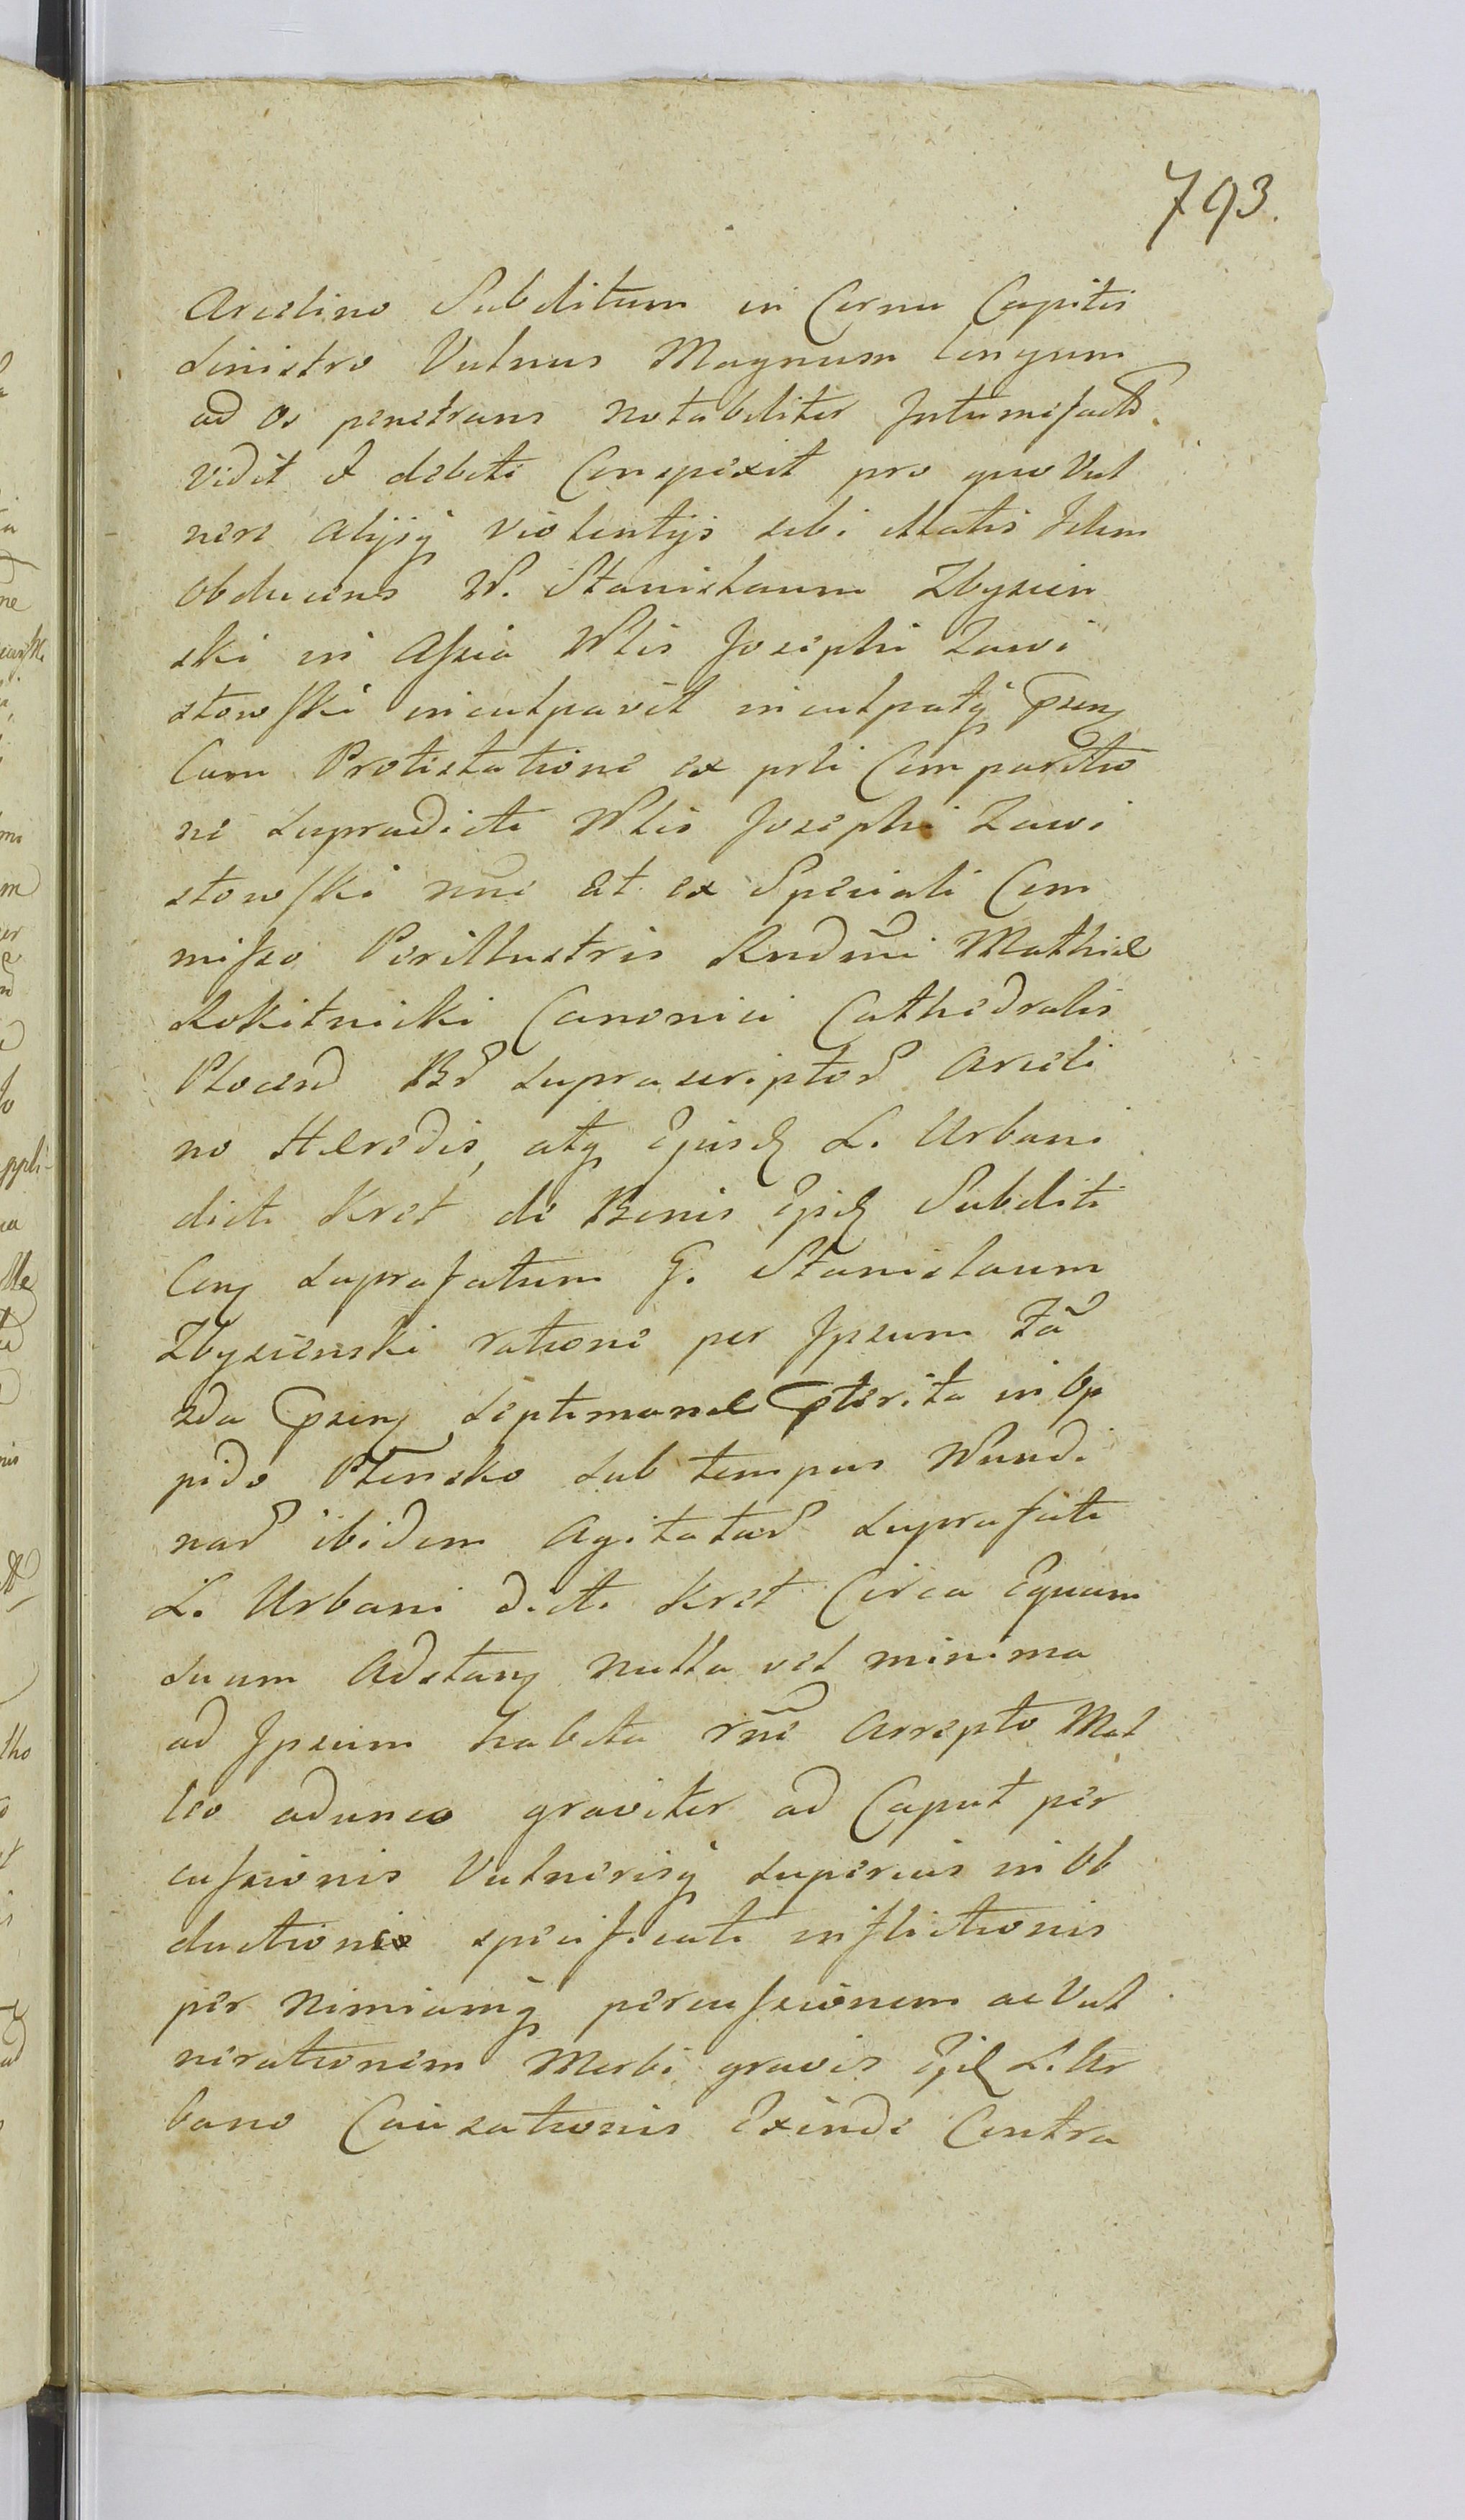 793.
Arcelino Subditum in Cornu Capitis
sinistro Vulnus Magnum longum
ad os penetrans notabiliter Intumefact
vidit et debite Conspexit pro quo Vul
nere alijsq violentijs sibi illatis Idem
obducens N. Stanislaum Zbysien
ski in Assia Nlis Josephi Zawi
stowski inculpavit inculpatq psens
Cum Protestatione ex psti Comparitio
ne supradicti Nlis Josephi Zawi
stowski nne et ex Speciali Com
misso Perillustris Rndmi Mathiæ
Rokitnicki Canonici Cathedralis
Plocens Br suprascriptor Arceli
no Hæredis, atq Ejusd L. Urbani
dicti Kret de Bonis Ejsd Subditi
Cont suprafatum G. Stanislaum
Zbysienski ratione per Ipsum Fã
eda psens septimanæ pterita in Op
pido Plonsko sub tempus Nundi
nar ibidem agitatar suprafati
L. Urbani dicti Kret Circa Equam
suum Adstans nulla vel minima
ad Ipsum habita rñe Arrepto Mal
leo adunco graviter ad Caput per
cussionis Vulnerisq superius in Ob
ductione specificati inflictionis
per nimiamq percussionem ac Vul
nerationem Morbi gravis Ejsd L. Ur
bano Causationis Exinde Contra